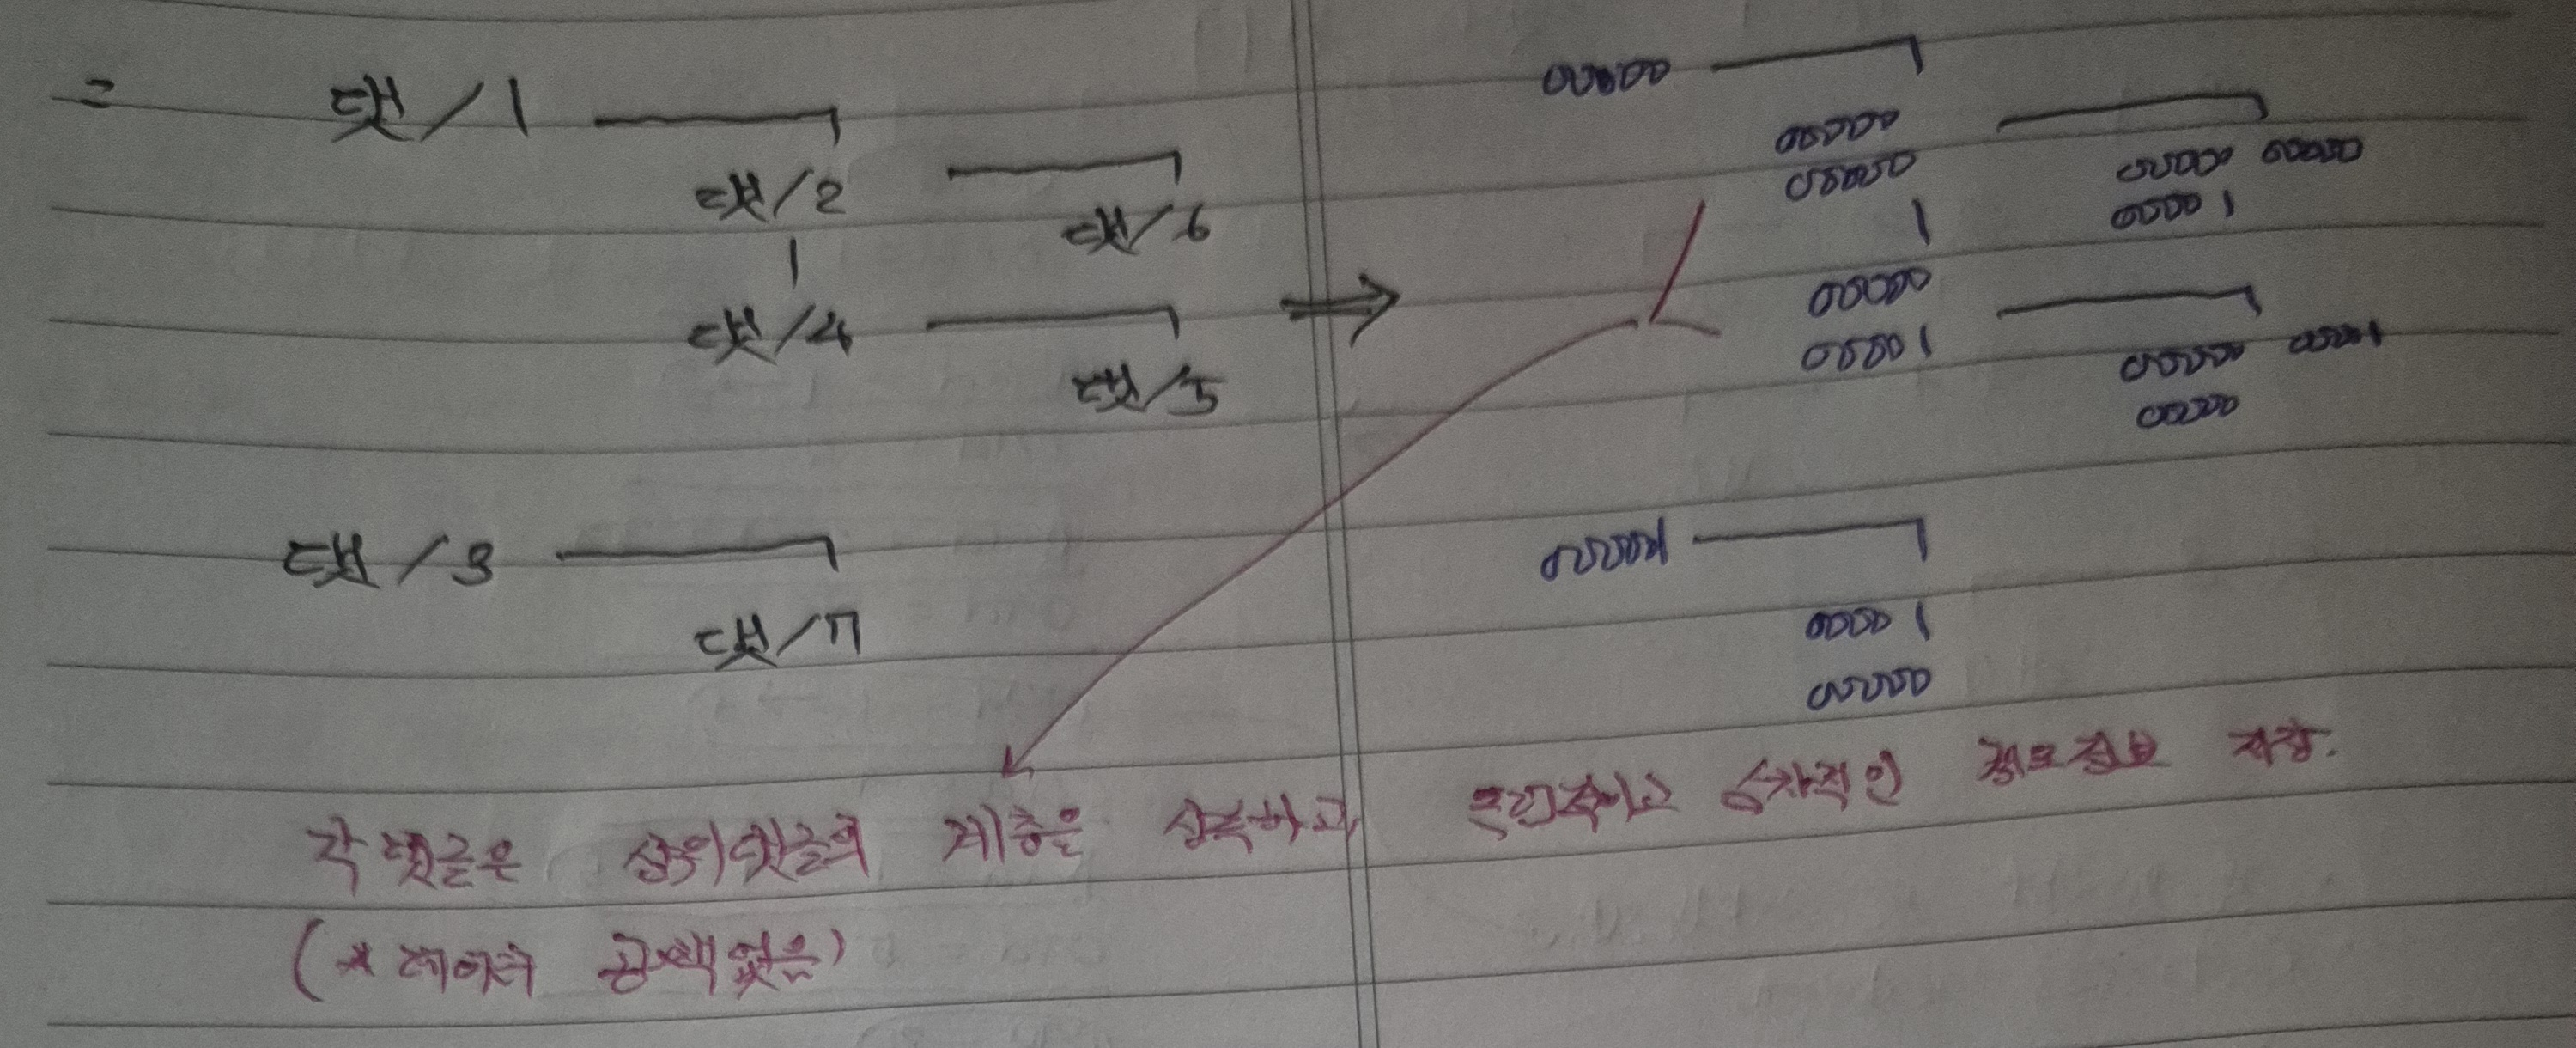 = 댓/1 00000
댓/2 00000
00000
댓/6 00000 00000
00001
댓/4 00000
00001
댓/5 00000 00001
00000
댓/3 00001
댓/7 00001
00000
각 댓글은 상위댓글의 계층을 상속하고, 독립적이고 순차적인 경로정보 저장.
(* 데이터 공백없음)